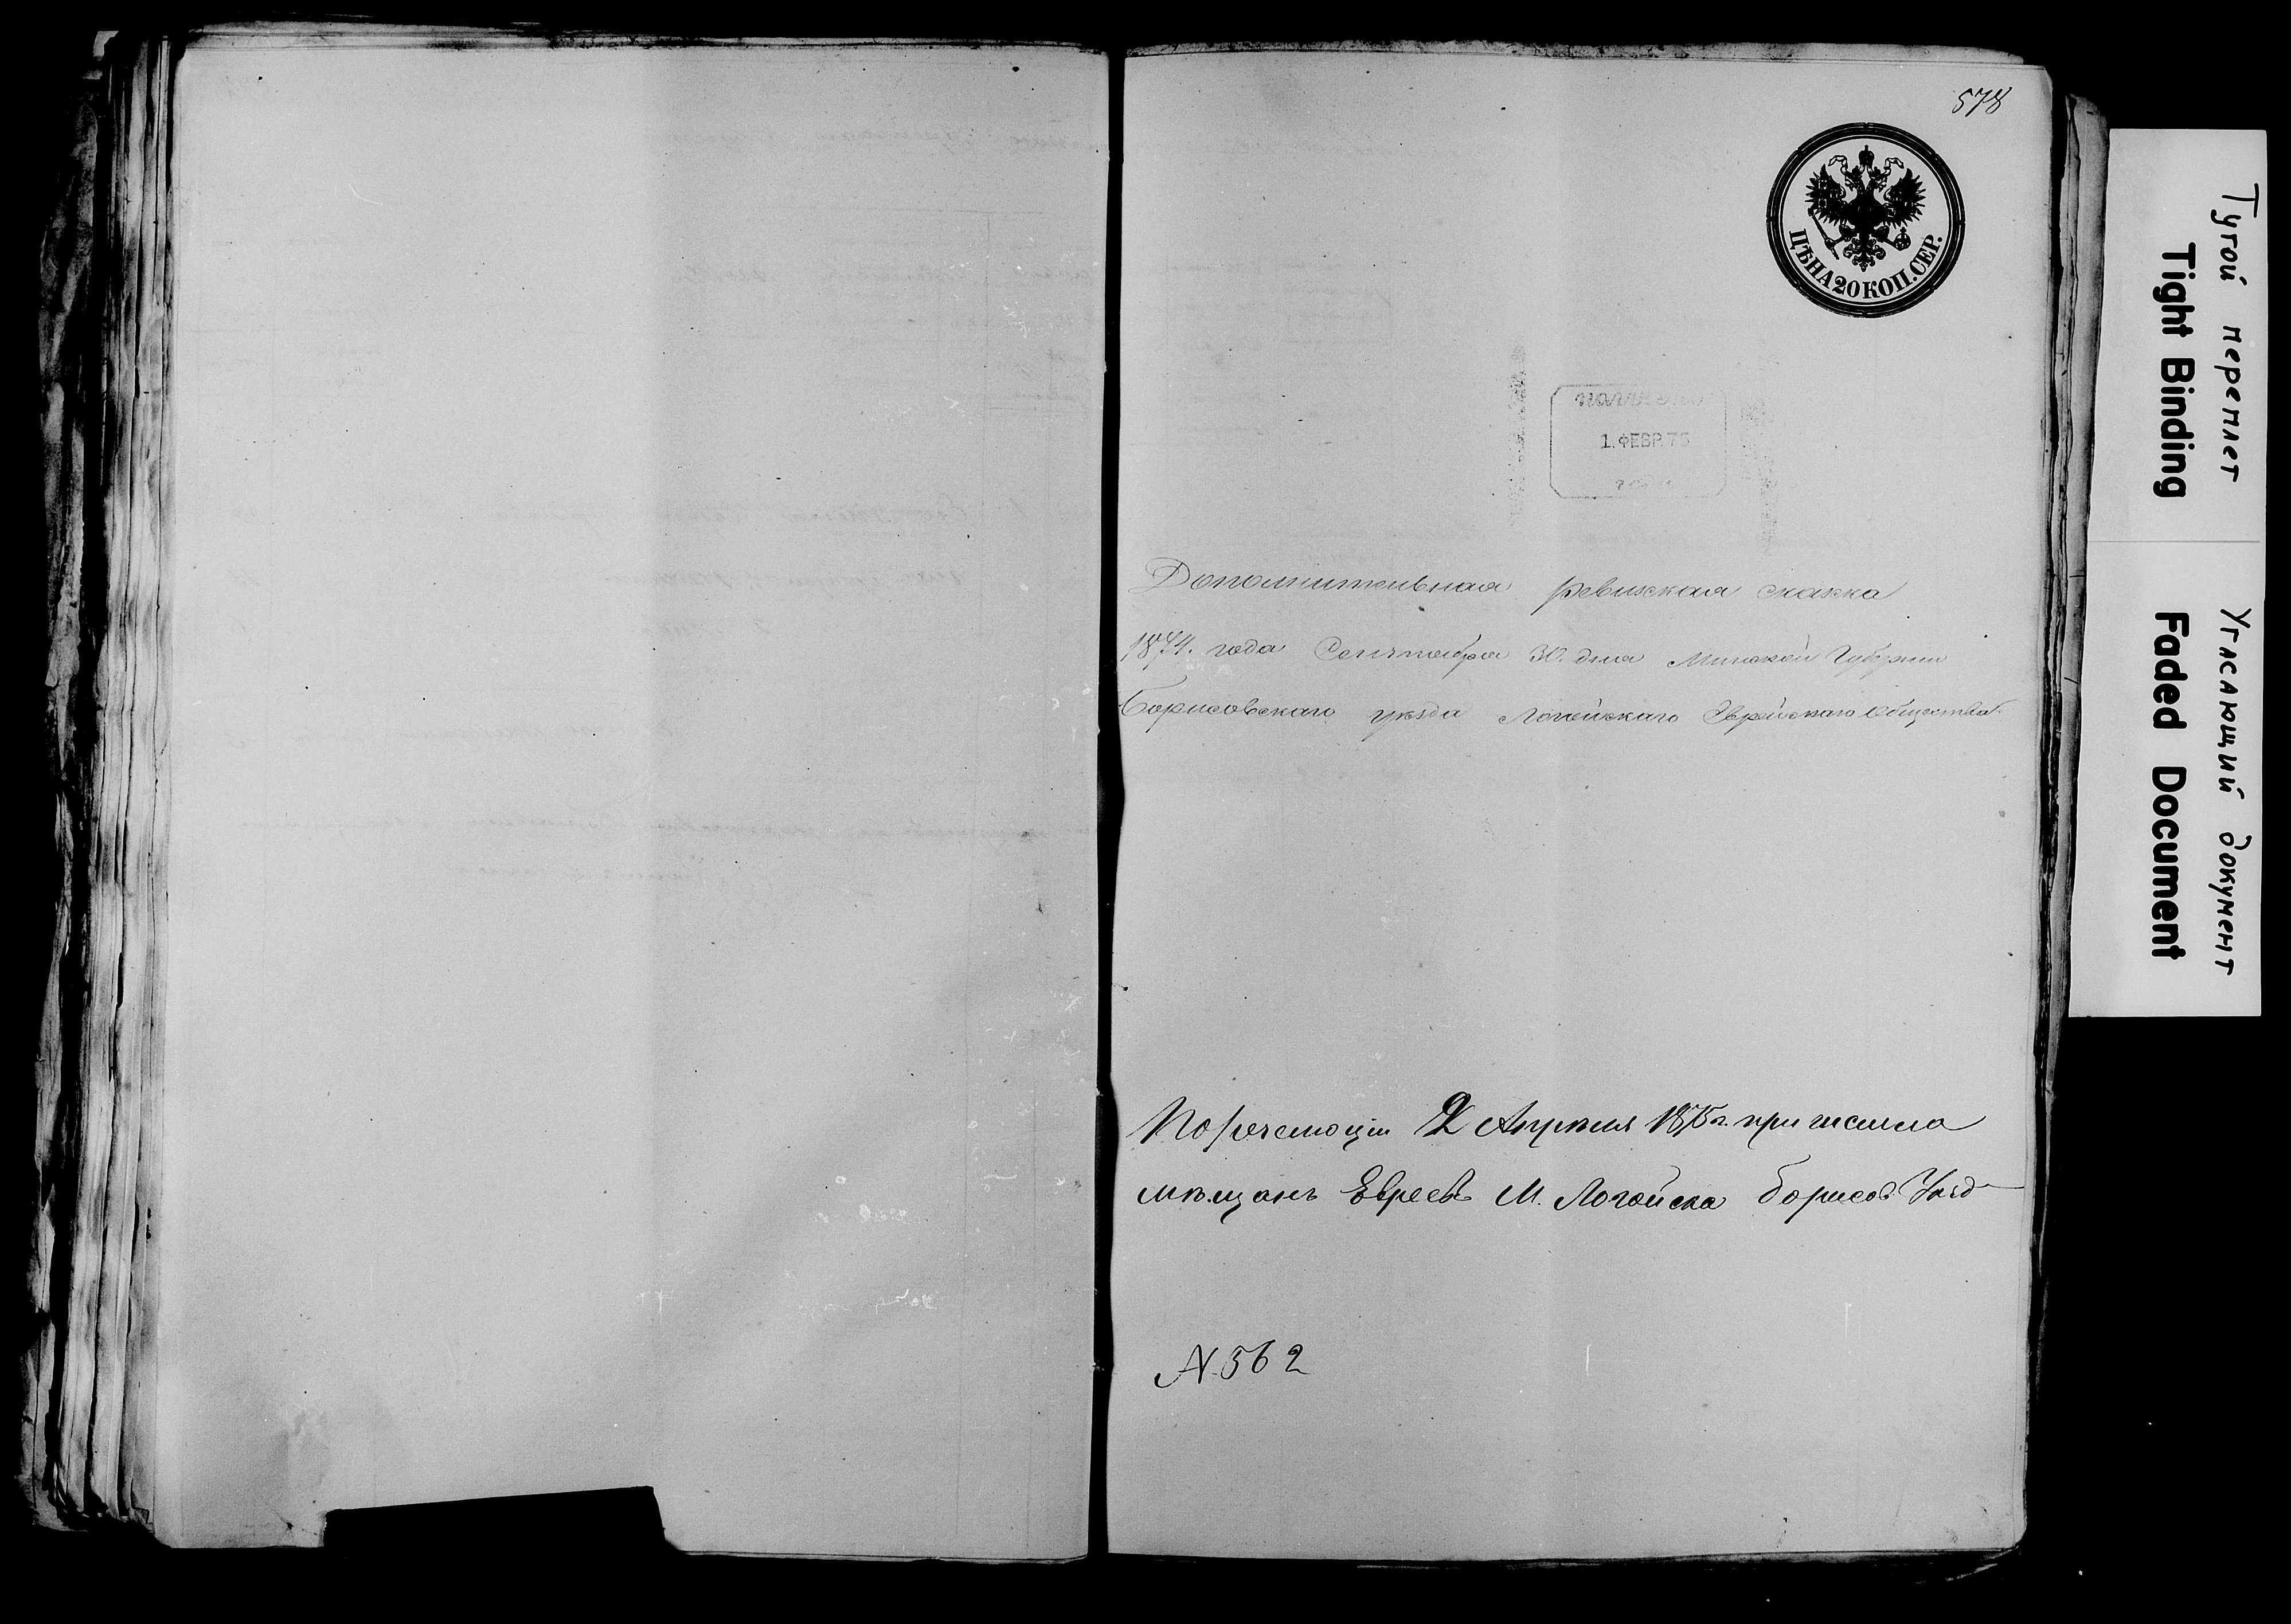 578
ЦѢНА 20 КОП. СЕР.
1. ФЕВР. 75
Дополнительная ревизская сказка
1874. года Сентября 30. дня Минской Губернии
Борисовскаго уѣзда Логойскаго Еврейскаго Общества.
2 Апрѣля 1875 г.
мѣщанъ Евреевъ М. Логойска Борисов. Уѣзд
N. 562
Тугой переплет
Tight Binding
Угасающий документ
Faded Document